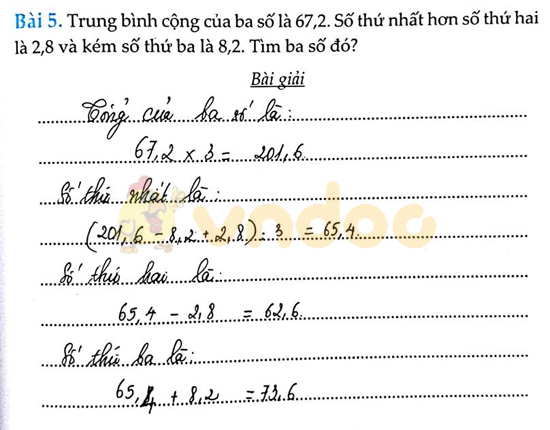 Bài 5. Trung bình cộng của ba số là 67,2. Số thứ nhất hơn số thứ hai
là 2,8 và kém số thứ ba là 8,2. Tìm ba số đó?
Bài giải
Tổng của ba số là:
67,2 x 3 = 201,6
Số thứ nhất là:
vndoc
(201,6 - 8,2 + 2,8) : 3 = 65,4
Số thứ hai là:
65,4 - 2,8 = 62,6
Số thứ ba là:
65,4 + 8,2 = 73,6